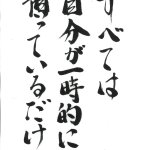 すべては
自分が一時的に
預っているだけ